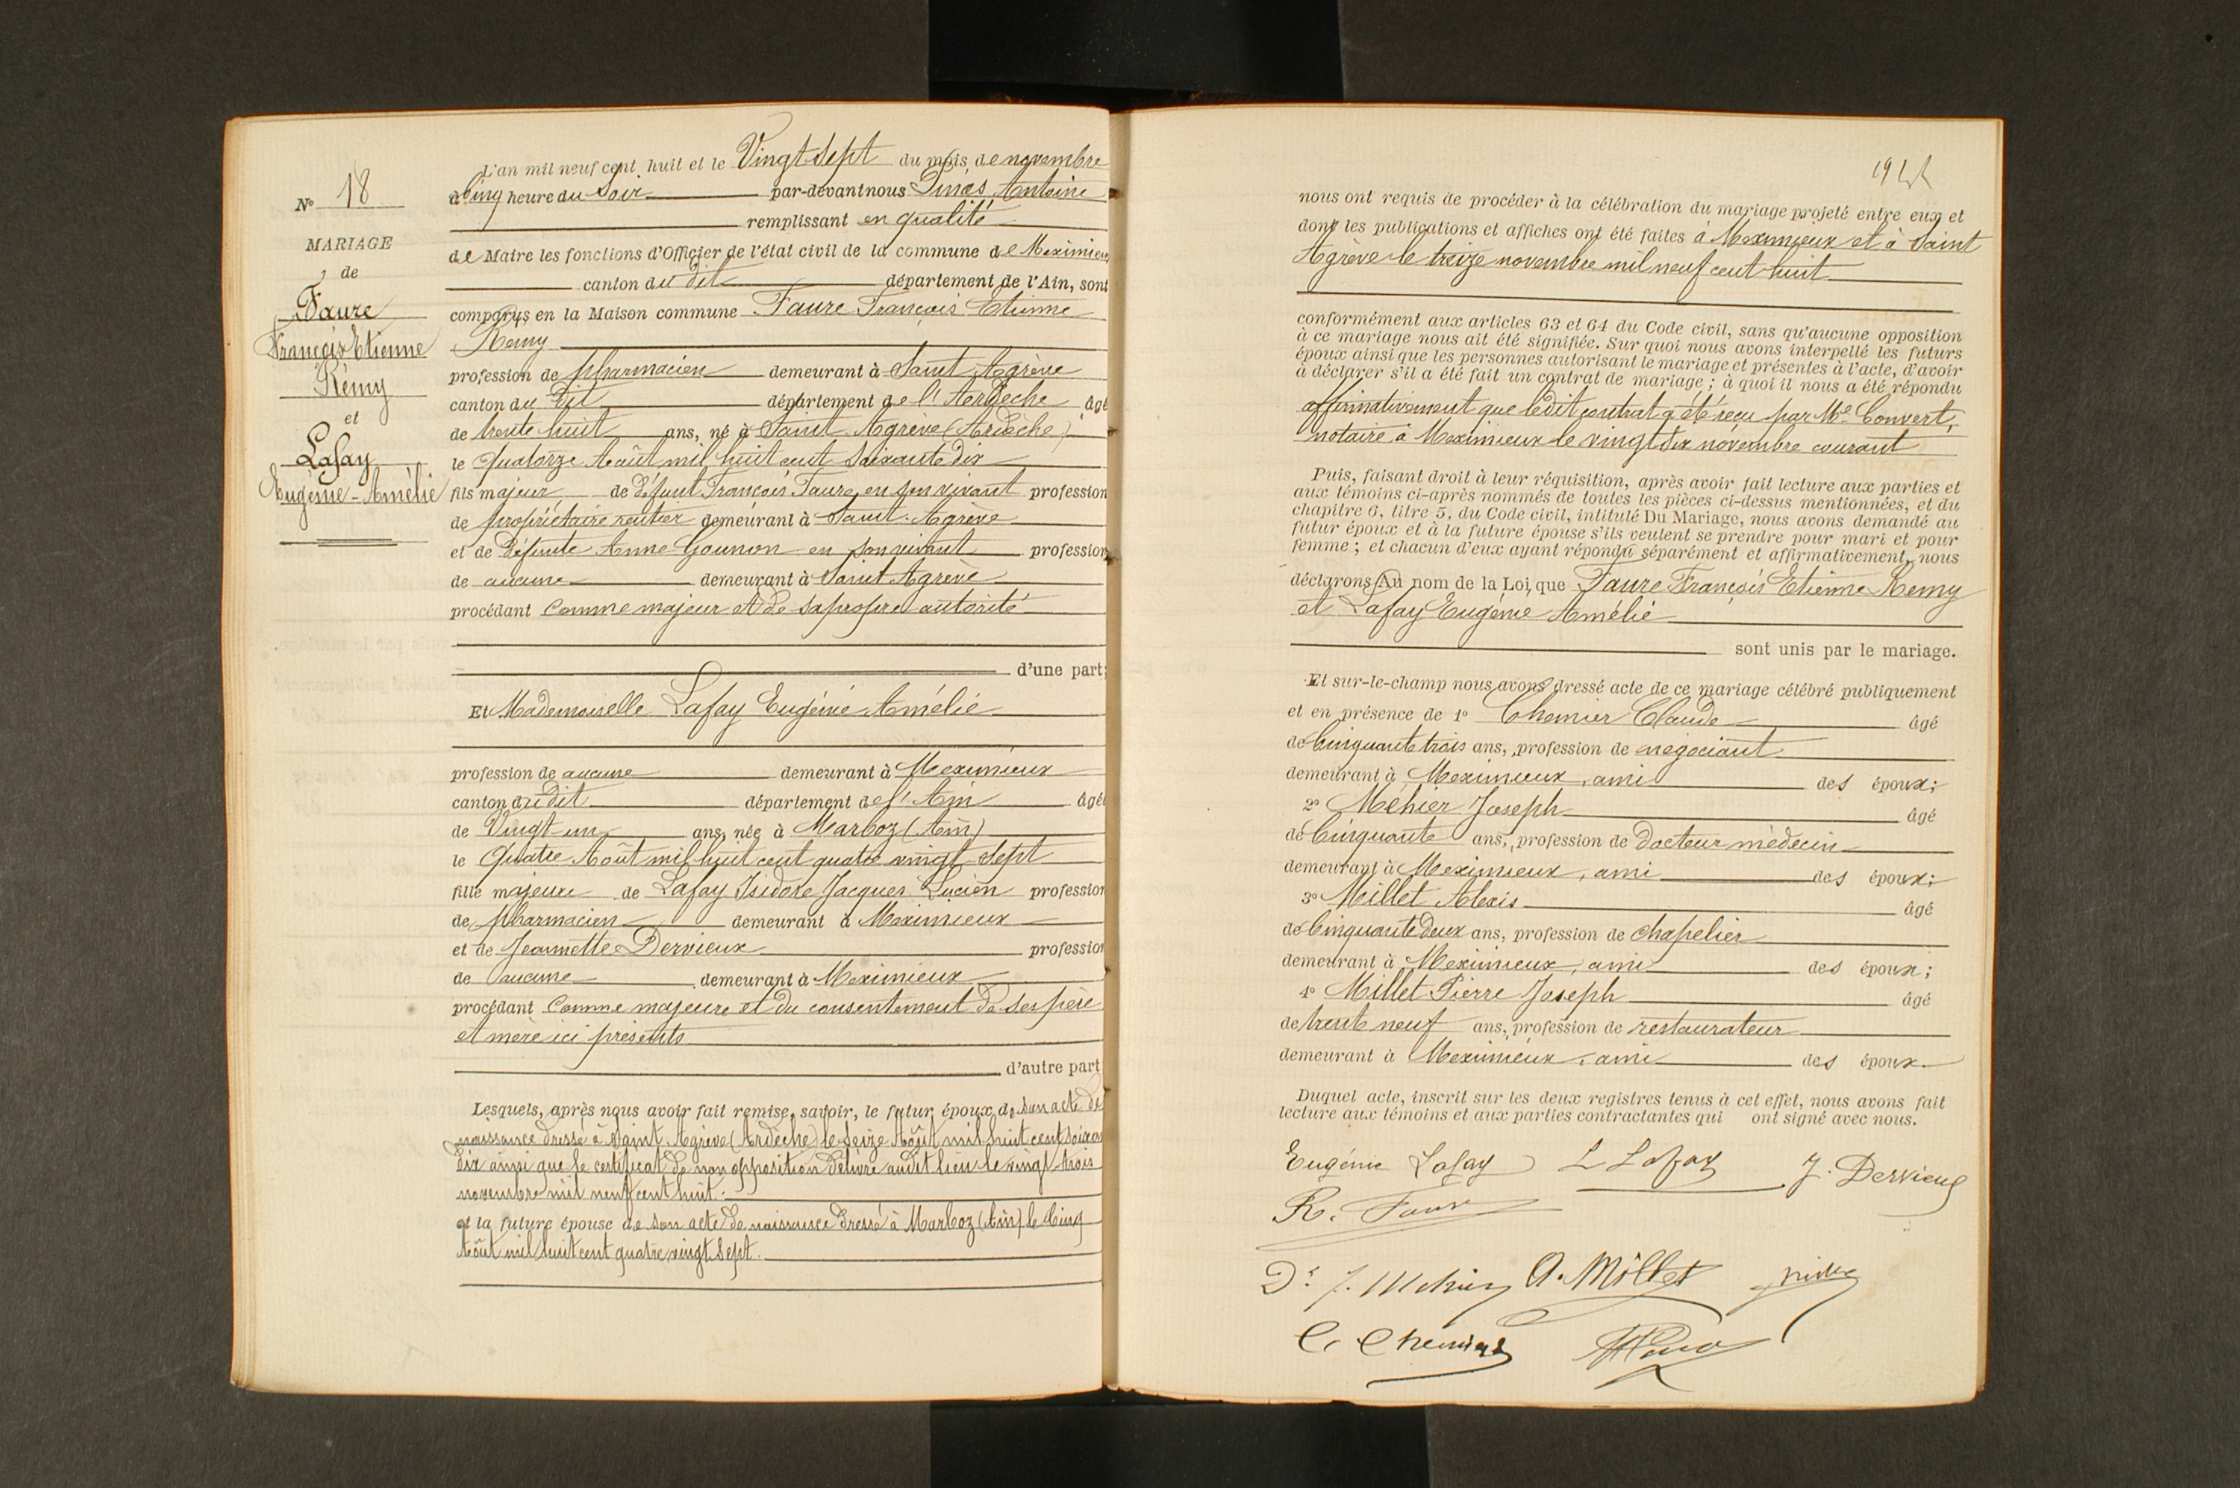 N° 18
MARIAGE
de
Faure
François Etienne
Rémy
et
Lafay
Eugénie-Amélie
L'an mil neuf cent huit et le Vingt sept du mois de novembre
à Cinq heure du Soir par-devant nous Antoine
remplissant en qualité
de Maire les fonctions d'Officier de l'état civil de la commune de Meximieux
canton du dit département de l'Ain, sont
comparus en la Maison commune Faure François Etienne
Remy
profession de pharmacien demeurant à Saint Agrève
canton du Dit département de l'Ardèche âgé
de trente huit ans, né à Saint Agrève (Ardèche)
le Quatorze Août mil huit cent soixante dix
fils majeur de défunt François Faure en son vivant profession
de propriétaire rentier demeurant à Saint-Agrève
et de Défunte Anne Gounon en son vivant profession
de aucune demeurant à Saint Agrève
procédant comme majeur et de sa propre autorité
d'une part;
Et Mademoiselle Lafay Eugénie Amélie
profession de aucune demeurant à Meximieux
canton du dit département de l'Ain âgée
de Vingt-un ans, née à Marboz (Ain)
le Quatre Août mil huit cent quatre vingt sept
fille majeure de Lafay Isidore Jacques Lucien profession
de pharmacien demeurant à Meximieux
et de Jeannette Dervieux profession
de aucune demeurant à Meximieux
procédant comme majeure et du consentement de ses père
et mère ici présents
d'autre part
Lesquels, après nous avoir fait remise, savoir, le futur époux de son acte de
naissance dressé à Saint Agrève (Ardèche) le Seize Août mil huit cent soixan
dix ainsi que le certificat de non opposition délivré audit lieu le vingt trois
novembre mil neuf cent huit.
et la future épouse de son acte de naissance dressé à Marboz (Ain) le Cinq
Août mil huit cent quatre vingt sept.
nous ont requis de procéder à la célébration du mariage projeté entre eux et
dont les publications et affiches ont été faites à Meximieux et à Saint
Agrève le treize novembre mil neuf cent huit
conformément aux articles 63 et 64 du Code civil, sans qu'aucune opposition
à ce mariage nous ait été signifiée. Sur quoi nous avons interpellé les futurs
époux ainsi que les personnes autorisant le mariage et présentes à l'acte, d'avoir
à déclarer s'il a été fait un contrat de mariage ; à quoi il nous a été répondu
affirmativement que ledit contrat a été reçu par Me Convert,
notaire à Meximieux le vingt six novembre courant
Puis, faisant droit à leur réquisition, après avoir fait lecture aux parties et
aux témoins ci-après nommés de toutes les pièces ci-dessus mentionnées, et du
chapitre 6, titre 5, du Code civil, intitulé Du Mariage, nous avons demandé au
futur époux et à la future épouse s'ils veulent se prendre pour mari et pour
femme ; et chacun d'eux ayant répondu séparément et affirmativement, nous
déclarons Au nom de la Loi, que Faure François Etienne Remy
et Lafay Eugénie Amélie
sont unis par le mariage.
Et sur-le-champ nous avons dressé acte de ce mariage célébré publiquement
et en présence de 1° Chemier Claude âgé
de Cinquante trois ans, profession de négociant
demeurant à Meximieux, ami des époux;
2° Méhier Joseph âgé
de Cinquante ans, profession de docteur médecin
demeurant à Meximieux, ami des époux;
3° Millet Alexis âgé
de Cinquante deux ans, profession de chapelier
demeurant à Meximieux, ami des époux;
4° Millet Pierre Joseph âgé
de trente neuf ans, profession de restaurateur
demeurant à Meximieux, ami des époux
Duquel acte, inscrit sur les deux registres tenus à cet effet, nous avons fait
lecture aux témoins et aux parties contractantes qui ont signé avec nous.
Eugénie Lafay L Lafay J. Dervieux
R. Faure
Dr J. Mehier A. Millet
C. Chemier